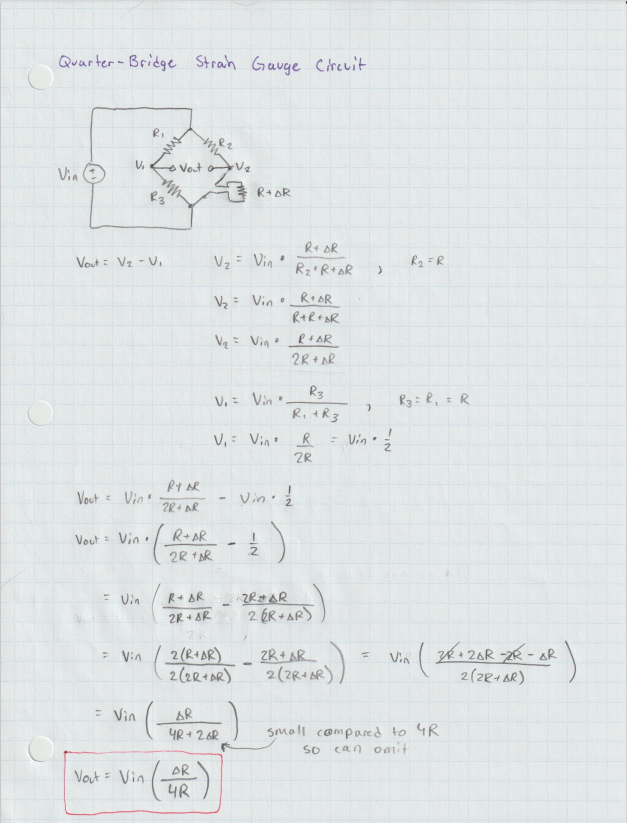 Quarter-Bridge Strain Gauge Circuit
R₁
R₂
Vin
+
-
V₁
Vout
V₂
R₃
R+ΔR
Vout = V₂ - V₁
V₂ = Vin · (R+ΔR)/(R₂+R+ΔR) , R₂=R
V₂ = Vin · (R+ΔR)/(R+R+ΔR)
V₂ = Vin · (R+ΔR)/(2R+ΔR)
V₁ = Vin · R₃/(R₁+R₃) , R₃=R₁=R
V₁ = Vin · R/2R = Vin · 1/2
Vout = Vin · (R+ΔR)/(2R+ΔR) - Vin · 1/2
Vout = Vin · ((R+ΔR)/(2R+ΔR) - 1/2)
= Vin ((R+ΔR)/(2R+ΔR) - (2R+ΔR)/2(2R+ΔR))
= Vin (2(R+ΔR)/2(2R+ΔR) - (2R+ΔR)/2(2R+ΔR)) = Vin ((2R+2ΔR-2R-ΔR)/2(2R+ΔR))
= Vin (ΔR/(4R+2ΔR))
small compared to 4R
so can omit
Vout = Vin (ΔR/4R)